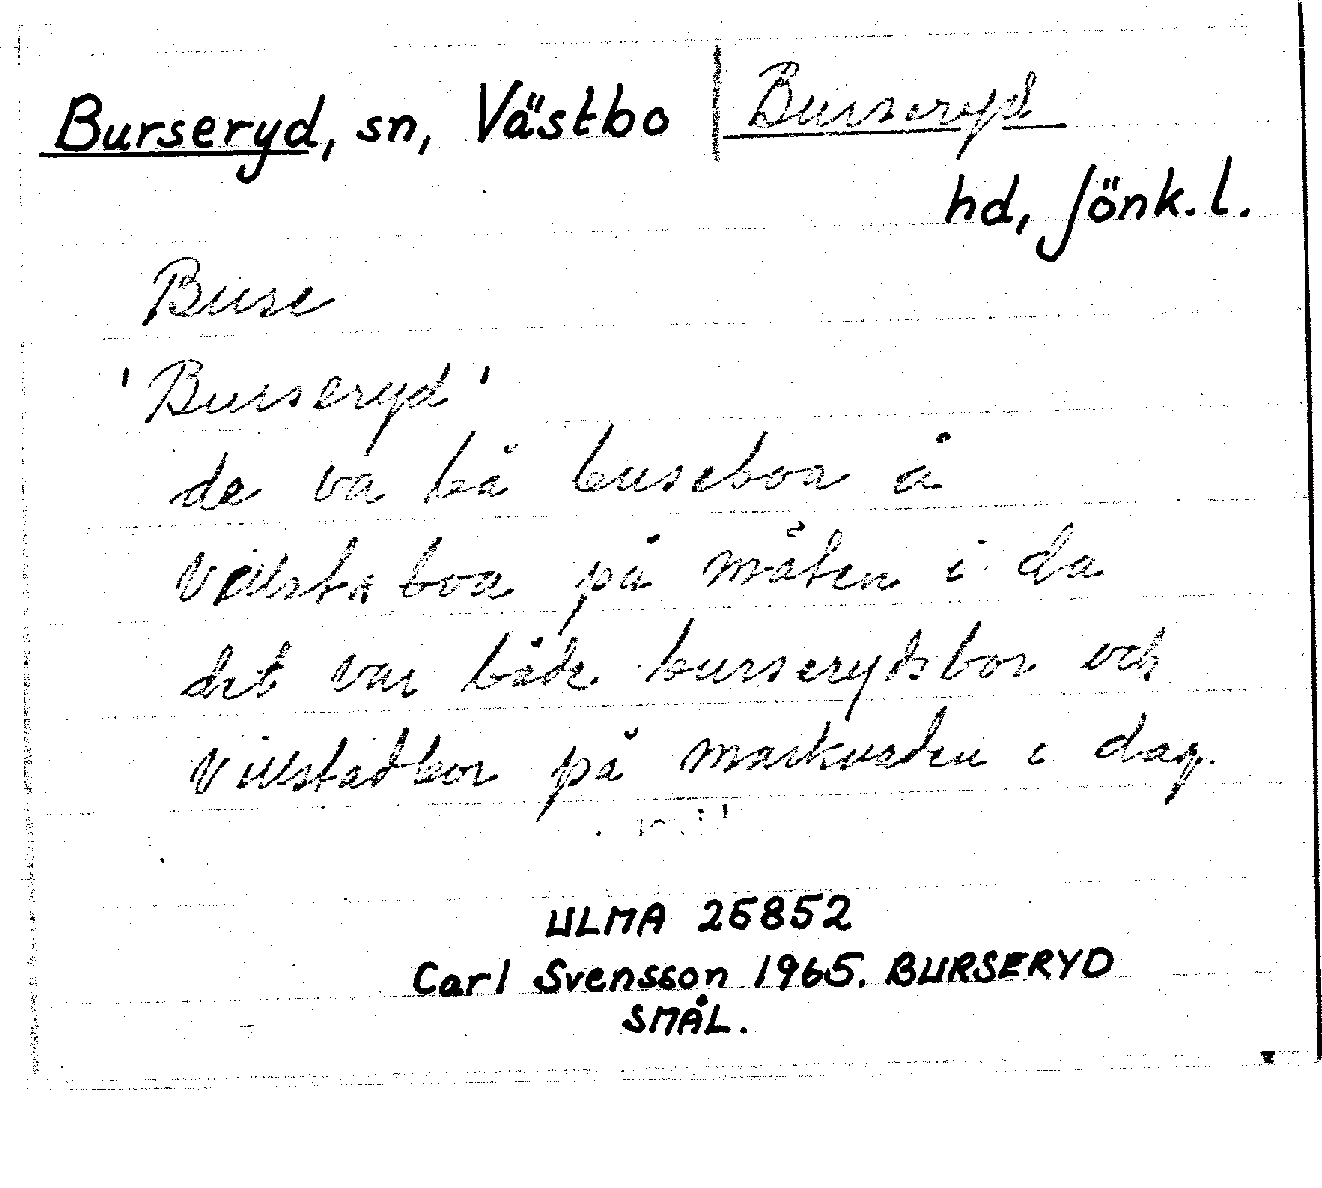 Burseryd, sn, Västbo | Burseryd
hd, Jönk. l.
Buse
'Burseryd'
de va bå buseboa å
Villstaboa på måten i da
det var både burserydsbor och
Villstadbor på markvaden i dag.
ULMA 26852
Carl Svensson 1965. BURSERYD
SMÅL.